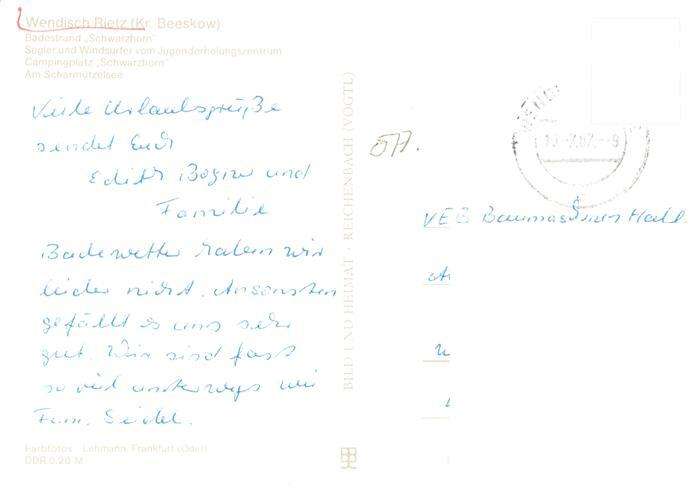 Wendisch Rietz (Kr. Beeskow)
Badestrand „Schwarzhorn"
Segler und Windsurfer vom Jugenderholungszentrum
Campingplatz „Schwarzhorn"
Am Scharmützelsee
Viele Urlaubsgrüße
sendet Euch
Edith und
Familie
Badewetter haben wir
leider nicht. Ansonsten
gefällt es uns sehr
gut. Wir sind fast
so viel unterwegs wie
Fam. Seidel.
Farbfotos: Lehmann, Frankfurt (Oder)
DDR 0,20 M
BILD UND HEIMAT · REICHENBACH (VOGTL)
VEB Baumaschinen Hall